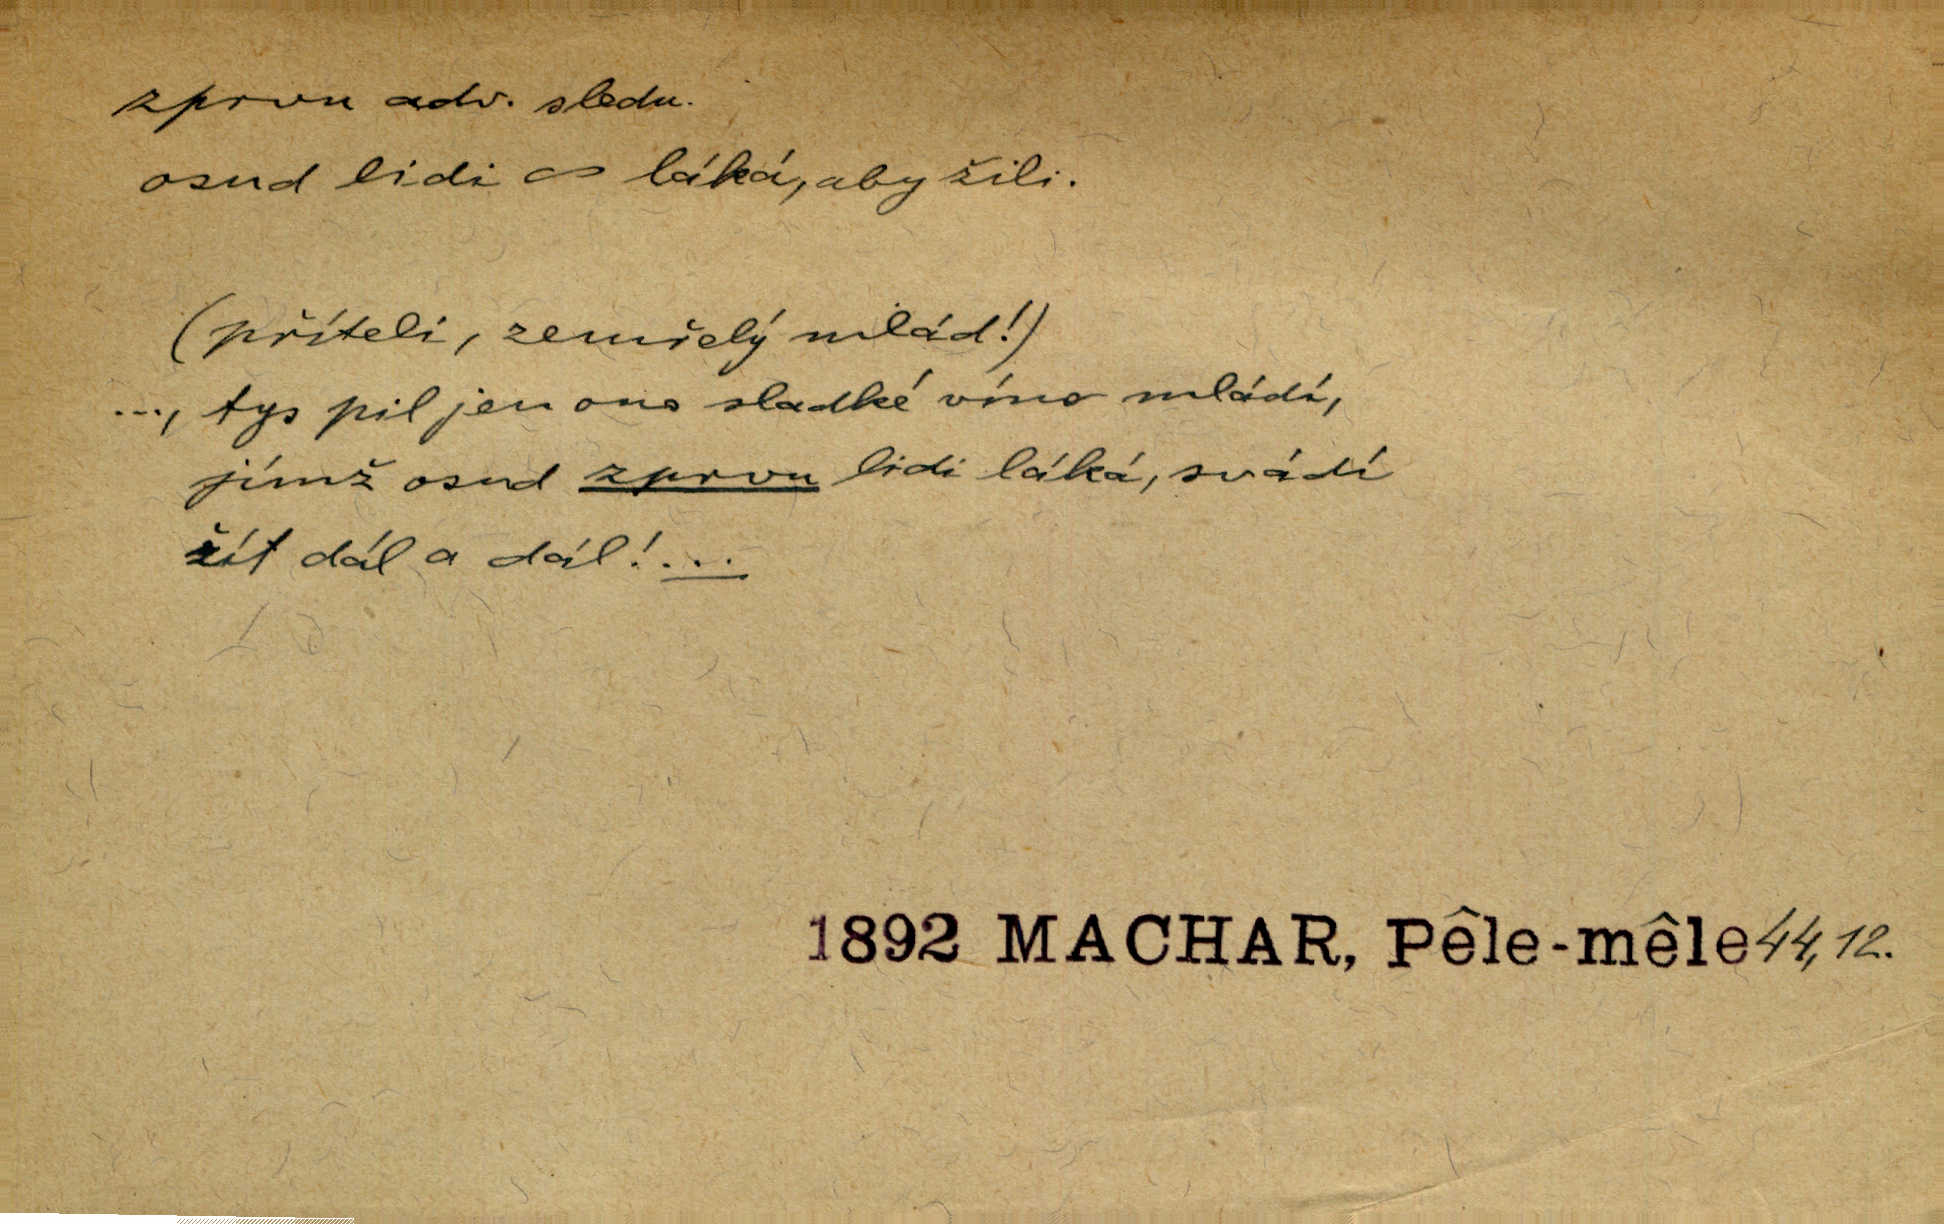 zprvu adv. sledu.
osud lidi ∞ láká, aby žili.
(příteli, zemřelý mlád!)
..., tys pil jen ono sladké víno mládí,
jímž osud zprvu lidi láká, svádí
žít dál a dál! ...
1892 MACHAR, Pêle-mêle 44, 12.